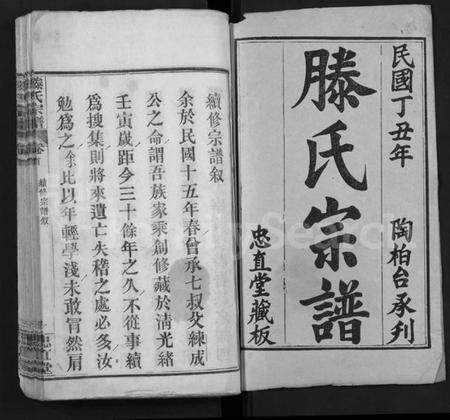 民國丁丑年
陶柏台承刋
滕氏宗譜
忠直堂藏板
續修宗譜叙
余於民國十五年春曾承七叔父練成
公之命謂吾族家乘創修藏於清光緒
壬寅歲距今三十餘年之久不從事續
為搜集則將來遺亡失稽之處必多汝
勉為之余比以年輕學淺未敢冒然肩
滕氏宗譜
卷首
續修宗譜叙
忠直堂
FamilySearch